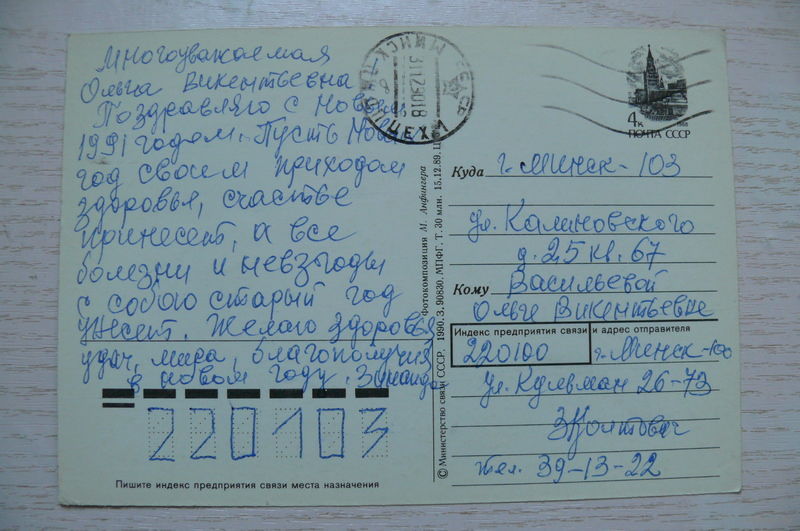 Многоуважаемая
Ольга Викентьевна
Поздравляю с Новым
1991 годом. Пусть Новый
год своим приходом
здоровья, счастье
принесет, а все
болезни и невзгоды
с собою старый год
унесет. Желаю здоровья,
удач, мира, благополучия
в новом году. Зинаида
220103
Пишите индекс предприятия связи места назначения
© Министерство связи СССР. 1990. З. 90830. МПФГ. Т. 30 млн. 15.12.89.
Фотокомпозиция М. Анфингера
МИНСК
31129018
4к
ПОЧТА СССР
Куда г. Минск-103
ул. Калиновского
д. 25 кв. 67
Кому Васильевой
Ольге Викентьевне
Индекс предприятия связи и адрес отправителя
220100 г. Минск-100
ул. Кульман 26-73
тел. 39-13-22